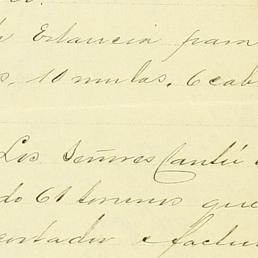 Estancia para
10 mulas. 6 cab
Los Señores Cantú
do 61 torunos que
ortador e factu